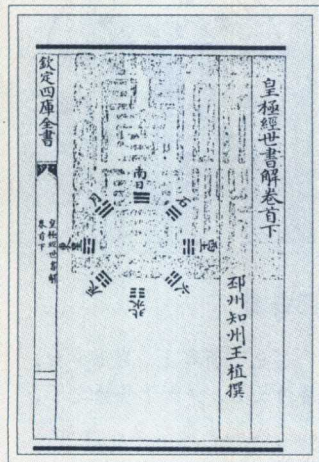 皇極經世書解卷首下
邳州知州王植撰
南日
月
石
水
北
欽定四庫全書
皇極經世書解
卷首下